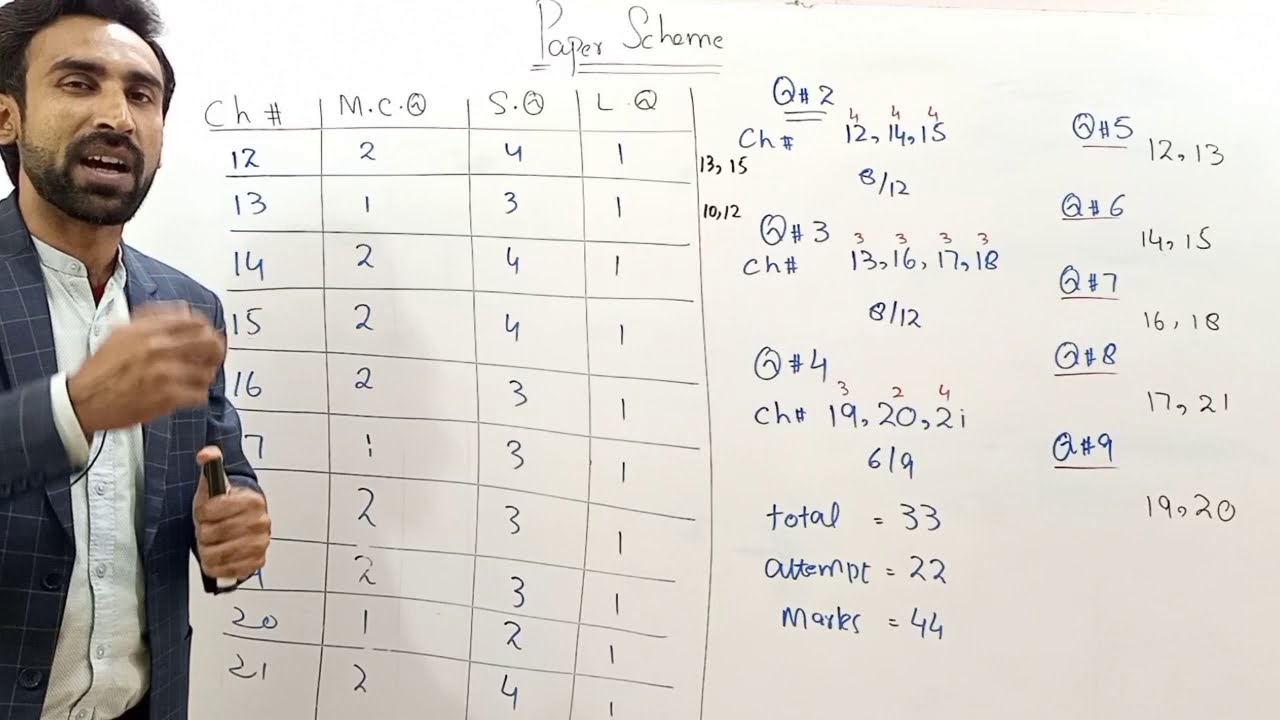 Paper Scheme
Ch # M.C.Q S.Q L.Q
12 2 4 1
13 1 3 1
14 2 4 1
15 2 4 1
16 2 3 1
7 1 3 1
2 3 1
2 3 1
20 1 2 1
21 2 4 1
13, 15
10,12
Q#2
4 4 4
Ch# 12, 14, 15
8/12
Q#3
3 3 3 3
Ch# 13, 16, 17, 18
8/12
Q#4
3 2 4
Ch# 19, 20, 21
6/9
total = 33
attempt = 22
Marks = 44
Q#5
12, 13
Q#6
14, 15
Q#7
16, 18
Q#8
17, 21
Q#9
19, 20